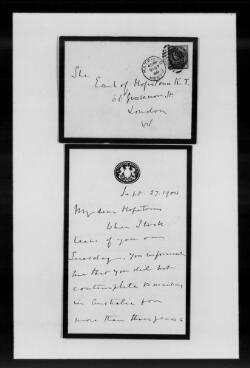 The
Earl of Hopetoun K.T.
Grosvenor St
London
W.
Sept. 27. 1900
My dear Hopetoun
When I took
leave of you on
Tuesday, you informed
me that you did not
contemplate remaining
in Australia for
more than three years &